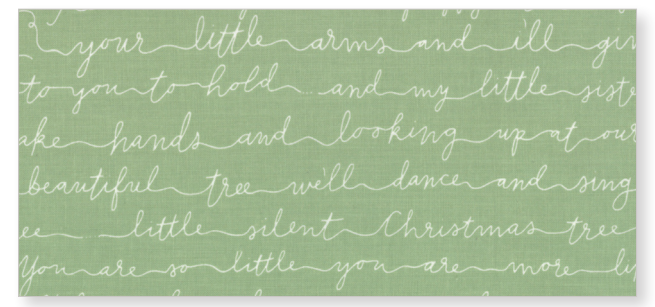 your little arms and i'll giv
to you to hold ... and my little siste
ake hands and looking up at our
beautiful tree we'll dance and sing
ee little silent Christmas tree
You are so little you are more li